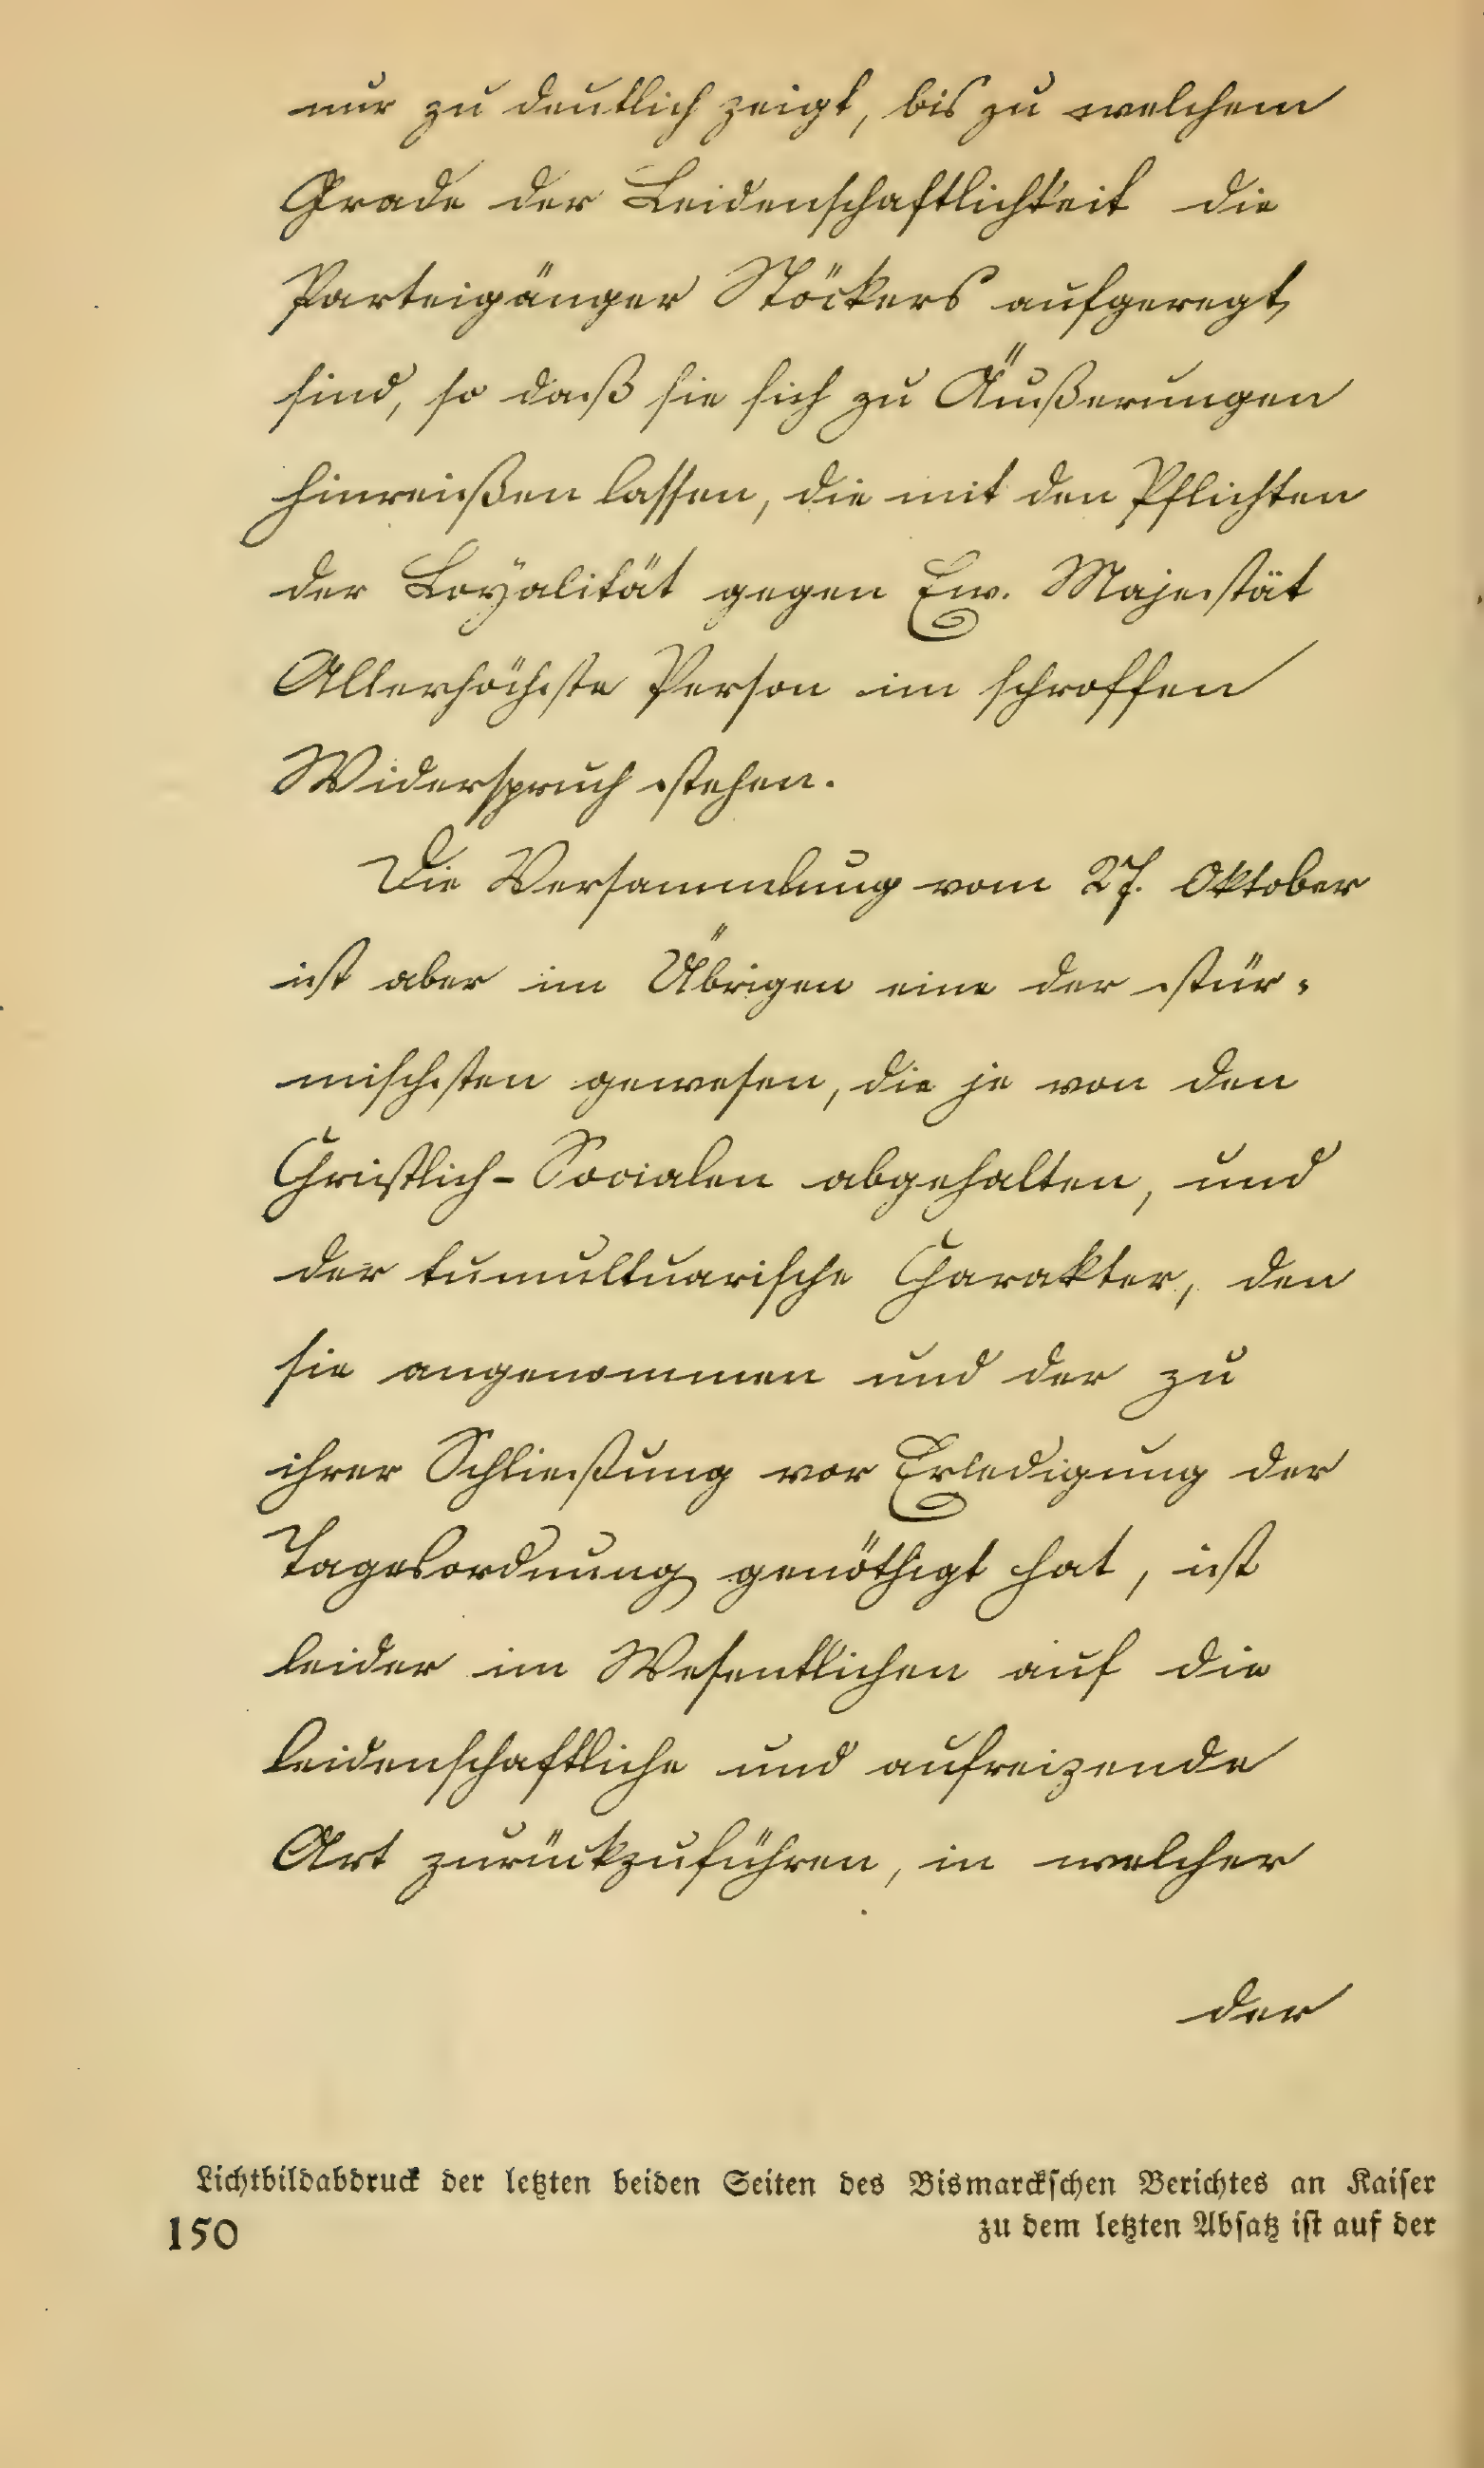 nur zu deutlich zeigt, bis zu welchem
Grade der Leidenschaftlichkeit die
Parteigänger Stöckers aufgeregt
sind, so daß sie sich zu Äußerungen
hinreißen lassen, die mit den Pflichten
der Loyalität gegen Ew. Majestät
Allerhöchste Person im schroffen
Widerspruch stehen.
Die Versammlung vom 27. Oktober
ist aber im Übrigen eine der stür-
mischsten gewesen, die je von den
Christlich-Socialen abgehalten, und
der tumultuarische Charakter, den
sie angenommen und der zu
ihrer Schließung vor Erledigung der
Tagesordnung genöthigt hat, ist
leider im Wesentlichen auf die
leidenschaftliche und aufreizende
Art zurückzuführen, in welcher
der
Lichtbildabdruck der letzten beiden Seiten des Bismarckschen Berichtes an Kaiser
zu dem letzten Absatz ist auf der
150